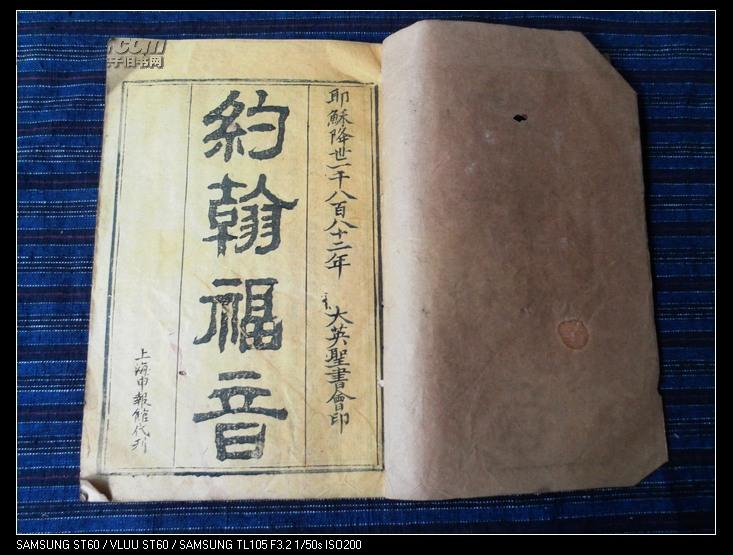 耶穌降世一千八百八十二年 大英聖書會印
約翰福音
上海申報館代刊
.com
子旧书网
SAMSUNG ST60 / VLUU ST60 / SAMSUNG TL105 F3.2 1/50s ISO200